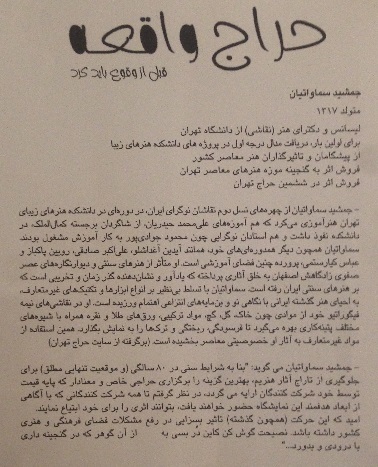 حراج واقعه
قبل از وقوع باید کرد
جمشید سماواتیان
متولد ۱۳۱۷
لیسانس و دکترای هنر (نقاشی) از دانشگاه تهران
برای اولین بار، دریافت مدال درجه اول در پروژه های دانشکده هنرهای زیبا
از پیشگامان و تاثیرگذاران هنر معاصر کشور
فروش اثر به گنجینه موزه هنرهای معاصر تهران
فروش اثر در ششمین حراج تهران
– جمشید سماواتیان از چهره‌های نسل دوم نقاشان نوگرای ایران، در دوره‌ای در دانشکده هنرهای زیبای
تهران هنرآموزی می‌کرد که هم آموزه‌های علی‌محمد حیدریان، از شاگردان برجسته کمال‌الملک، در
دانشکده نفوذ داشت و هم استادان نوگرایی چون محمود جوادی‌پور به کار آموزش مشغول بودند
سماواتیان همچون دیگر همدوره‌ای‌های خود، همانند آیدین آغداشلو، علی‌اکبر صادقی، رویین پاکباز و
عباس کیارستمی، پرورده چنین فضای آموزشی است. او متأثر از هنرهای سنتی و دیوارنگاره‌های عصر
صفوی زادگاهش اصفهان به خلق آثاری پرداخته که یادآور و نشان‌دهنده گذر زمان و تخریبی است که
بر هنرهای سنتی ایران رفته است. سماواتیان با تسلط بی‌نظیر بر انواع ابزارها و تکنیک‌های غیرمتعارف،
به احیای هنر گذشته ایرانی با نگاهی نو و بن‌مایه‌های انتزاعی اهتمام ورزیده است. او در نقاشی‌های نیمه
فیگوراتیو خود از موادی چون خاک، گل، گچ، مواد ترکیبی، ورق‌های طلا و نقره همراه با شیوه‌های
مختلف پتینه‌کاری بهره می‌گیرد تا فرسودگی، ریختگی و ترک‌ها را به نمایش بگذارد. همین استفاده از
مواد غیرمتعارف به آثار او خصوصیتی معاصر بخشیده است. (برگرفته از سایت حراج تهران)
– جمشید سماواتیان می گوید: "بنا به شرایط سنی در ۸۰ سالگی (و موقعیت تنهایی مطلق) برای
جلوگیری از تاراج آثار هنریم، بهترین گزینه را برگزاری حراجی خاص و معنادار که پایه قیمت
توسط خود شرکت کنندگان ارایه می گردد، در نظر گرفتم تا همه شرکت کنندگانی که با آگاهی
از ابعاد هدفمند این نمایشگاه حضور خواهند یافت، بتوانند اثری را برای خود ابتیاع نمایند.
امید که این حرکت (همچون گذشته) تاثیر بسزایی در رفع مشکلات فضای فرهنگی و هنری
کشور داشته باشد. نصیحت گوش کن کاین در بسی به از آن گوهر که در گنجینه داری
با درودی و بدرود..."